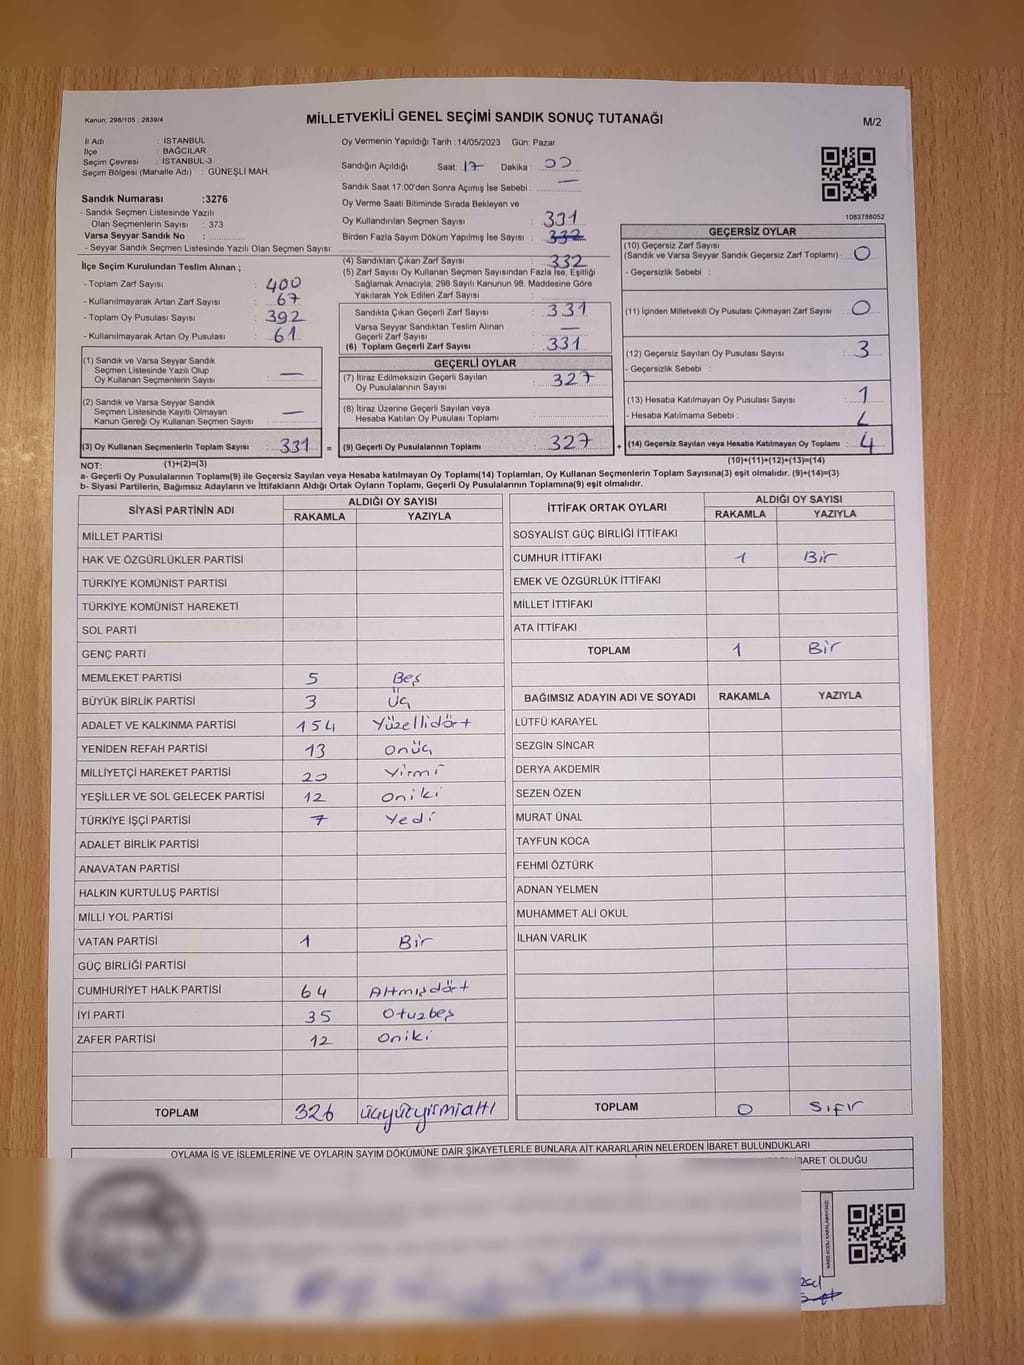 Kanun; 298/105 , 2839/4
MİLLETVEKİLİ GENEL SEÇİMİ SANDIK SONUÇ TUTANAĞI
M/2
İl Adı : İSTANBUL
İlçe : BAĞCILAR
Seçim Çevresi : İSTANBUL-3
Seçim Bölgesi (Mahalle Adı) : GÜNEŞLİ MAH.
Sandık Numarası :3276
- Sandık Seçmen Listesinde Yazılı
Olan Seçmenlerin Sayısı : 373
Varsa Seyyar Sandık No :
- Seyyar Sandık Seçmen Listesinde Yazılı Olan Seçmen Sayısı:
Oy Vermenin Yapıldığı Tarih :14/05/2023 Gün: Pazar
Sandığın Açıldığı Saat: 17 Dakika : 00
Sandık Saat 17:00'den Sonra Açımış İse Sebebi : —
Oy Verme Saati Bitiminde Sırada Bekleyen ve
Oy Kullandırılan Seçmen Sayısı : 331
Birden Fazla Sayım Döküm Yapılmış İse Sayısı : 332
1083788052
İlçe Seçim Kurulundan Teslim Alınan ;
- Toplam Zarf Sayısı : 400
- Kullanılmayarak Artan Zarf Sayısı : 67
- Toplam Oy Pusulası Sayısı : 392
- Kullanılmayarak Artan Oy Pusulası : 61
(1) Sandık ve Varsa Seyyar Sandık
Seçmen Listesinde Yazılı Olup
Oy Kullanan Seçmenlerin Sayısı : —
(2) Sandık ve Varsa Seyyar Sandık
Seçmen Listesinde Kayıtlı Olmayan
Kanun Gereği Oy Kullanan Seçmen Sayısı : —
(3) Oy Kullanan Seçmenlerin Toplam Sayısı : 331 =
(4) Sandıktan Çıkan Zarf Sayısı : 332
(5) Zarf Sayısı Oy Kullanan Seçmen Sayısından Fazla İse, Eşitliği
Sağlamak Amacıyla; 298 Sayılı Kanunun 98. Maddesine Göre
Yakılarak Yok Edilen Zarf Sayısı :
Sandıkta Çıkan Geçerli Zarf Sayısı : 331
Varsa Seyyar Sandıktan Teslim Alınan
Geçerli Zarf Sayısı : —
(6) Toplam Geçerli Zarf Sayısı : 331
GEÇERLİ OYLAR
(7) İtiraz Edilmeksizin Geçerli Sayılan
Oy Pusulalarının Sayısı : 327
(8) İtiraz Üzerine Geçerli Sayılan veya
Hesaba Katılan Oy Pusulası Toplamı :
(9) Geçerli Oy Pusulalarının Toplamı : 327 +
GEÇERSİZ OYLAR
(10) Geçersiz Zarf Sayısı
(Sandık ve Varsa Seyyar Sandık Geçersiz Zarf Toplamı) : 0
- Geçersizlik Sebebi :
(11) İçinden Milletvekili Oy Pusulası Çıkmayan Zarf Sayısı : 0
(12) Geçersiz Sayılan Oy Pusulası Sayısı : 3
- Geçersizlik Sebebi :
(13) Hesaba Katılmayan Oy Pusulası Sayısı : 1
- Hesaba Katılmama Sebebi :
(14) Geçersiz Sayılan veya Hesaba Katılmayan Oy Toplamı : 4
NOT: (1)+(2)=(3)
(10)+(11)+(12)+(13)=(14)
a- Geçerli Oy Pusulalarının Toplamı(9) ile Geçersiz Sayılan veya Hesaba katılmayan Oy Toplamı(14) Toplamları, Oy Kullanan Seçmenlerin Toplam Sayısına(3) eşit olmalıdır. (9)+(14)=(3)
b- Siyasi Partilerin, Bağımsız Adayların ve İttifakların Aldığı Ortak Oyların Toplamı, Geçerli Oy Pusulalarının Toplamına(9) eşit olmalıdır.
SİYASİ PARTİNİN ADI ALDIĞI OY SAYISI
RAKAMLA YAZIYLA
MİLLET PARTİSİ
HAK VE ÖZGÜRLÜKLER PARTİSİ
TÜRKİYE KOMÜNİST PARTİSİ
TÜRKİYE KOMÜNİST HAREKETİ
SOL PARTİ
GENÇ PARTİ
MEMLEKET PARTİSİ 5 Beş
BÜYÜK BİRLİK PARTİSİ 3 Üç
ADALET VE KALKINMA PARTİSİ 154 Yüzellidört
YENİDEN REFAH PARTİSİ 13 onüç
MİLLİYETÇİ HAREKET PARTİSİ 20 Yirmi
YEŞİLLER VE SOL GELECEK PARTİSİ 12 oniki
TÜRKİYE İŞÇİ PARTİSİ 7 Yedi
ADALET BİRLİK PARTİSİ
ANAVATAN PARTİSİ
HALKIN KURTULUŞ PARTİSİ
MİLLİ YOL PARTİSİ
VATAN PARTİSİ 1 Bir
GÜÇ BİRLİĞİ PARTİSİ
CUMHURİYET HALK PARTİSİ 64 Altmışdört
İYİ PARTİ 35 Otuzbeş
ZAFER PARTİSİ 12 oniki
TOPLAM 326 üçyüzyirmialtı
İTTİFAK ORTAK OYLARI ALDIĞI OY SAYISI
RAKAMLA YAZIYLA
SOSYALİST GÜÇ BİRLİĞİ İTTİFAKI
CUMHUR İTTİFAKI 1 Bir
EMEK VE ÖZGÜRLÜK İTTİFAKI
MİLLET İTTİFAKI
ATA İTTİFAKI
TOPLAM 1 Bir
BAĞIMSIZ ADAYIN ADI VE SOYADI RAKAMLA YAZIYLA
LÜTFÜ KARAYEL
SEZGİN SİNCAR
DERYA AKDEMİR
SEZEN ÖZEN
MURAT ÜNAL
TAYFUN KOCA
FEHMİ ÖZTÜRK
ADNAN YELMEN
MUHAMMET ALİ OKUL
İLHAN VARLIK
TOPLAM 0 Sıfır
OYLAMA İŞ VE İŞLEMLERİNE VE OYLARIN SAYIM DÖKÜMÜNE DAİR ŞİKAYETLERLE BUNLARA AİT KARARLARIN NELERDEN İBARET BULUNDUKLARI
BARET OLDUĞU